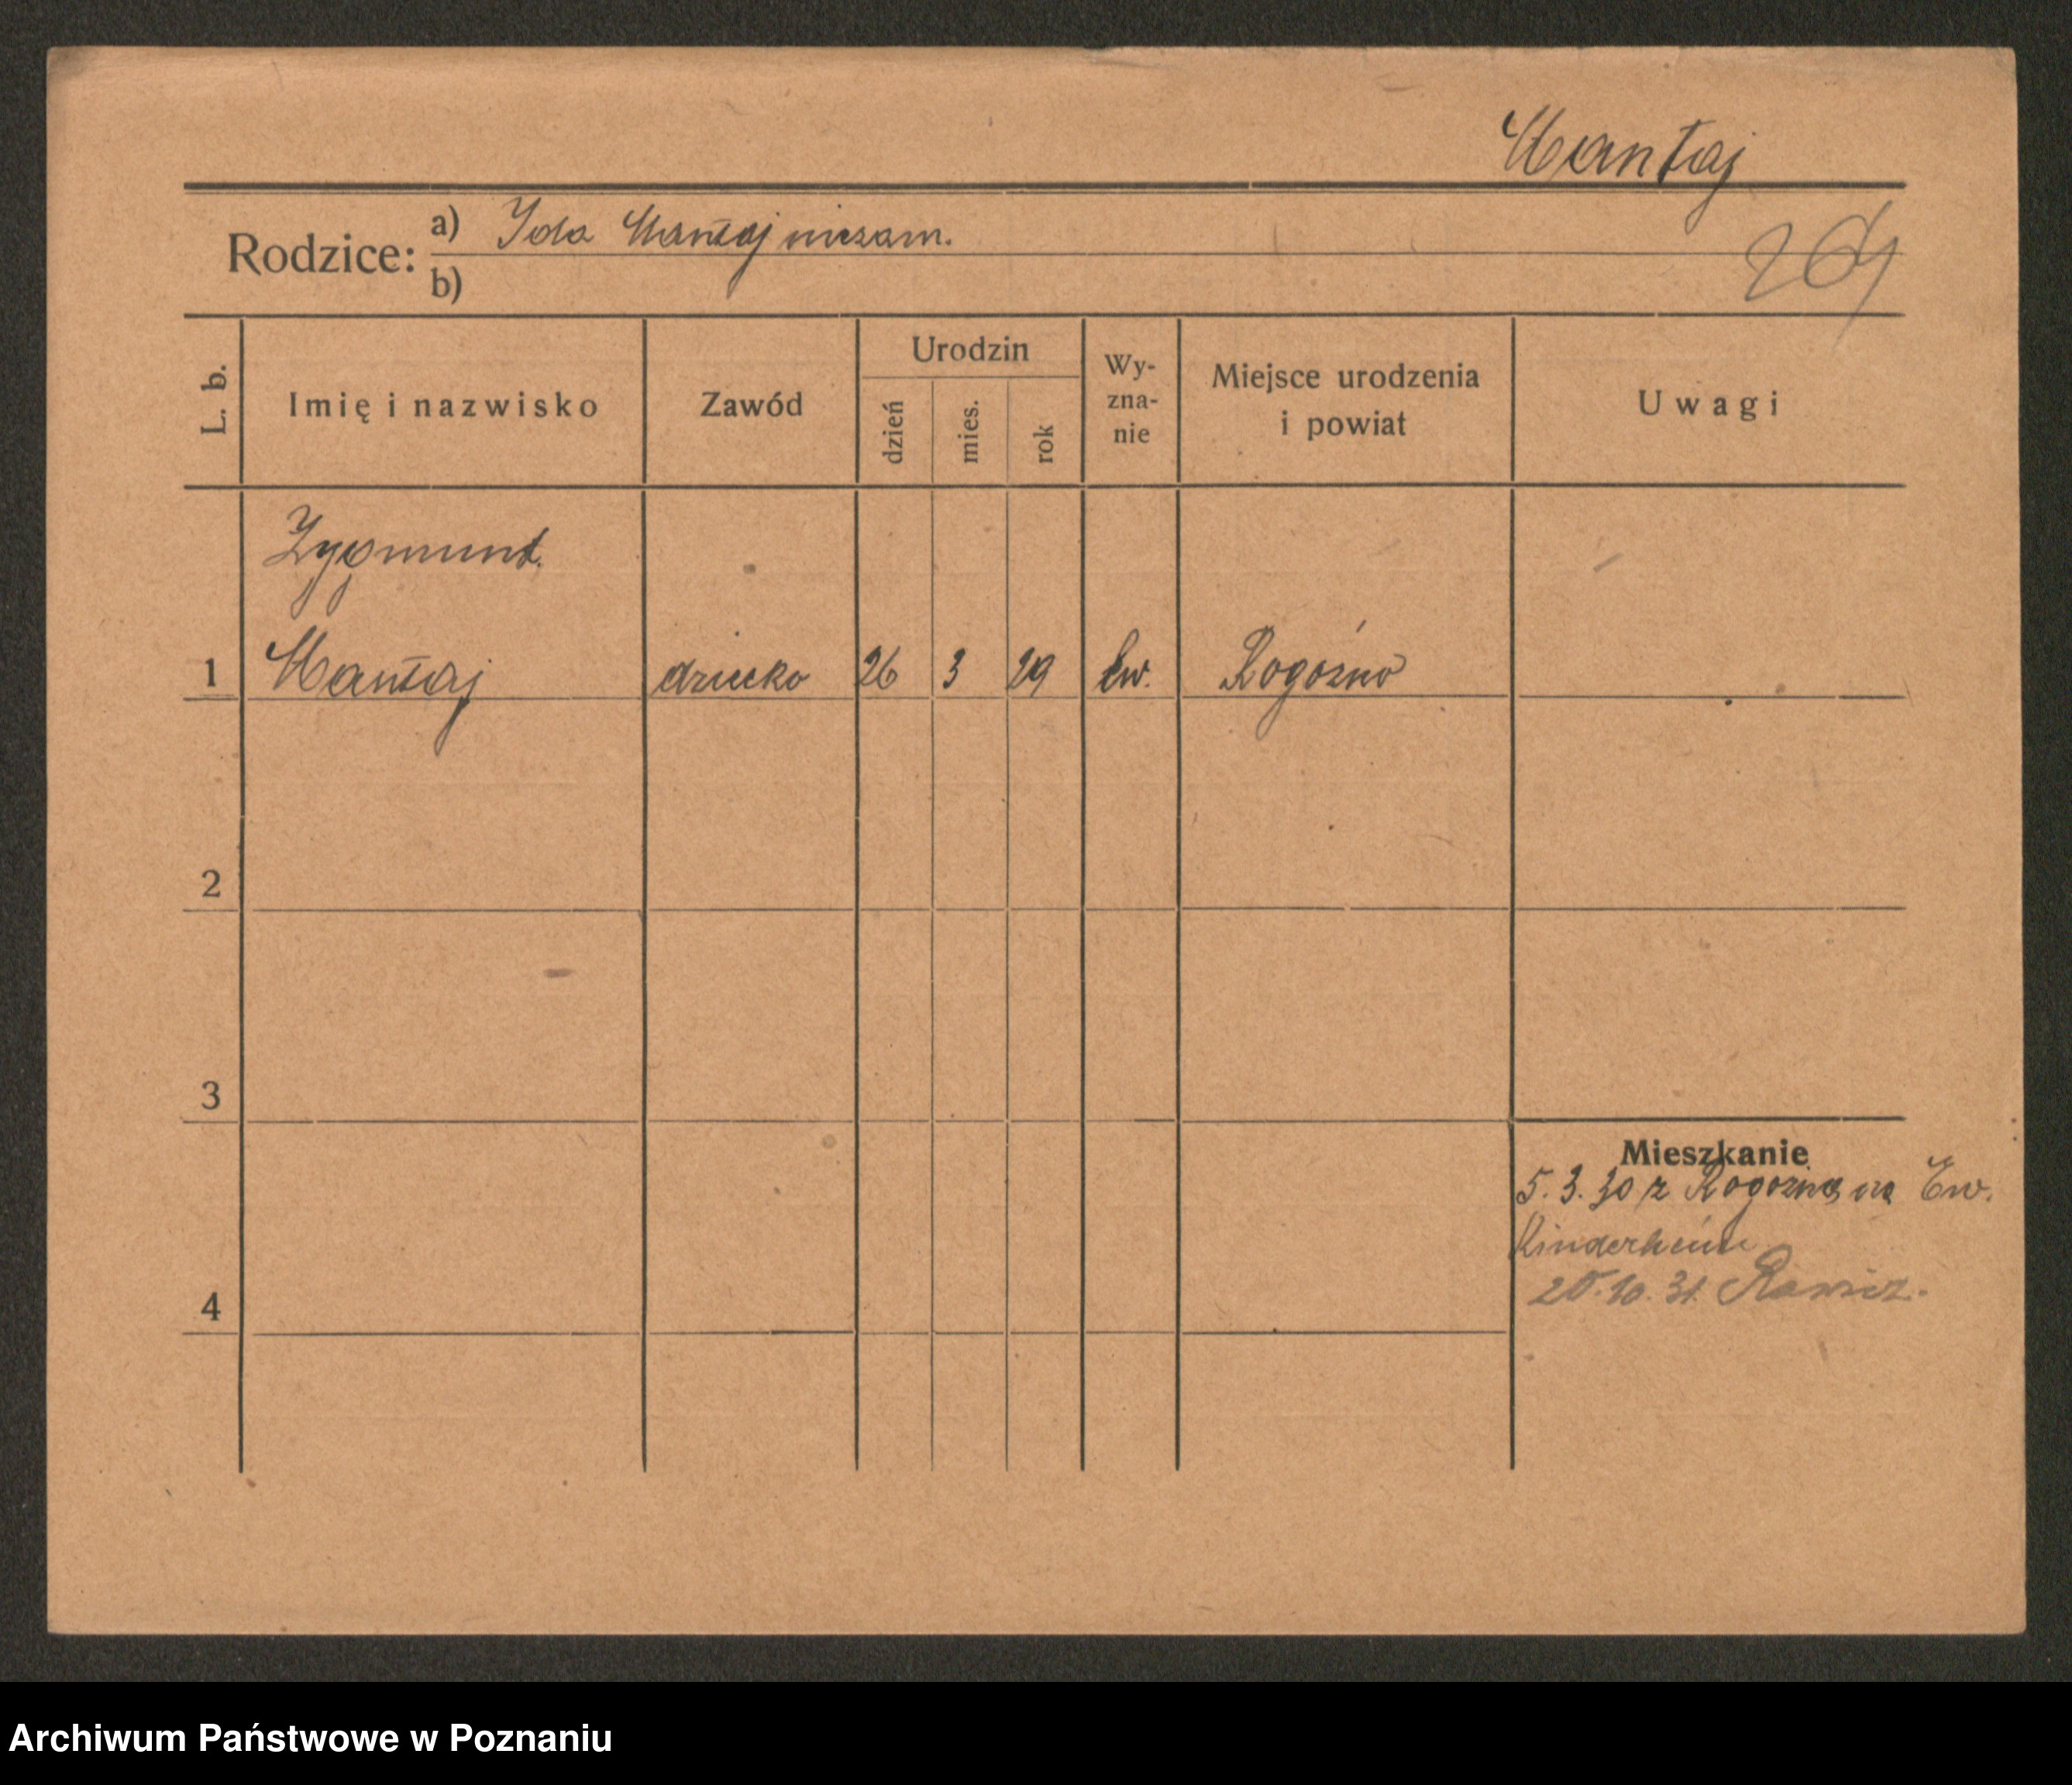 Mantaj
Rodzice: a) Ida Mantaj niezam.
b)
L. b.
Imię i nazwisko
Zawód
Urodzin
dzień
mies.
rok
Wy-
zna-
nie
Miejsce urodzenia
i powiat
Uwagi
Zygmunt
1 Mantaj dziecko 26 3 29 Ew. Rogoźno
2
3
4
Mieszkanie
5. 3. 30 z Rogoźna na Ew.
Kinderheim
10. 31. Rawicz.
Archiwum Państwowe w Poznaniu